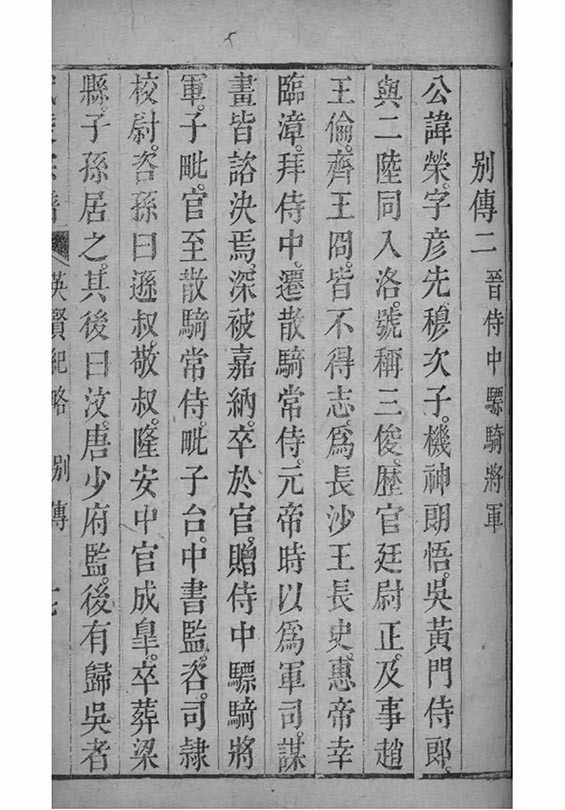 別傳二 晉侍中驃騎將軍
公諱榮。字彥先。穆次子。機神朗悟。吳黃門侍郎。
與二陸同入洛。號稱三俊。歷官廷尉正。及事趙
王倫。齊王冏。皆不得志。爲長沙王長史。惠帝幸
臨漳。拜侍中。遷散騎常侍。元帝時以爲軍司。謀
畫皆諮決焉。深被嘉納。卒於官。贈侍中驃騎將
軍。子毗。官至散騎常侍。毗子台。中書監。咨。司隸
校尉。咨孫曰遜叔。敬叔。隆安中官成皐。卒葬梁
縣。子孫居之。其後曰汶。唐少府監。後有歸吳者
英賢紀略 別傳